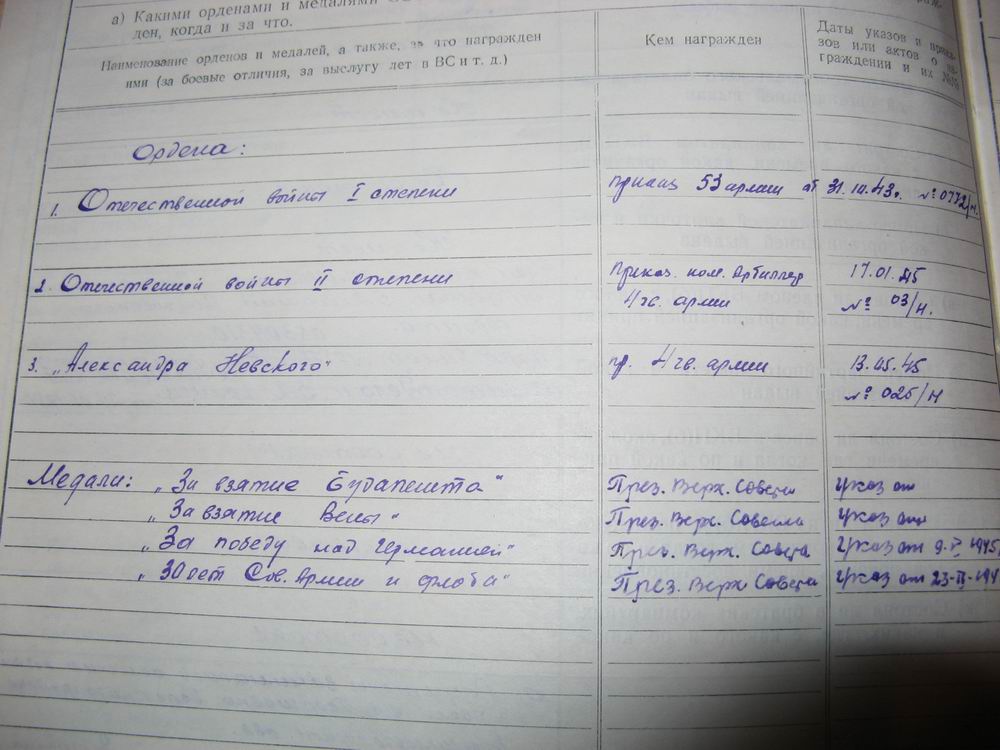 а) Какими орденами и медалями
ден, когда и за что.
Наименование орденов и медалей, а также, за что награжден
ими (за боевые отличия, за выслугу лет в ВС и т. д.)
Кем награжден
Даты указов и прика-
зов или актов о на-
граждении и их №№
Ордена:
1. Отечественной войны I степени
приказ 53 армии от 31.10.43г. № 0772/н.
2. Отечественной войны II степени
Приказ. ком. Артиллер 17.01.45
4 гв. армии № 03/н.
3. „Александра Невского"
пр. 4 гв. армии 13.05.45
№ 025/н
Медали: „За взятие Будапешта" През. Верх. Совета указ от
„За взятие Вены" През. Верх. Совета указ от
„За победу над Германией" През. Верх. Совета Указ от 9.V.1945
„30 лет Сов. Армии и флота" През. Верх. Совета Указ от 23-II-194